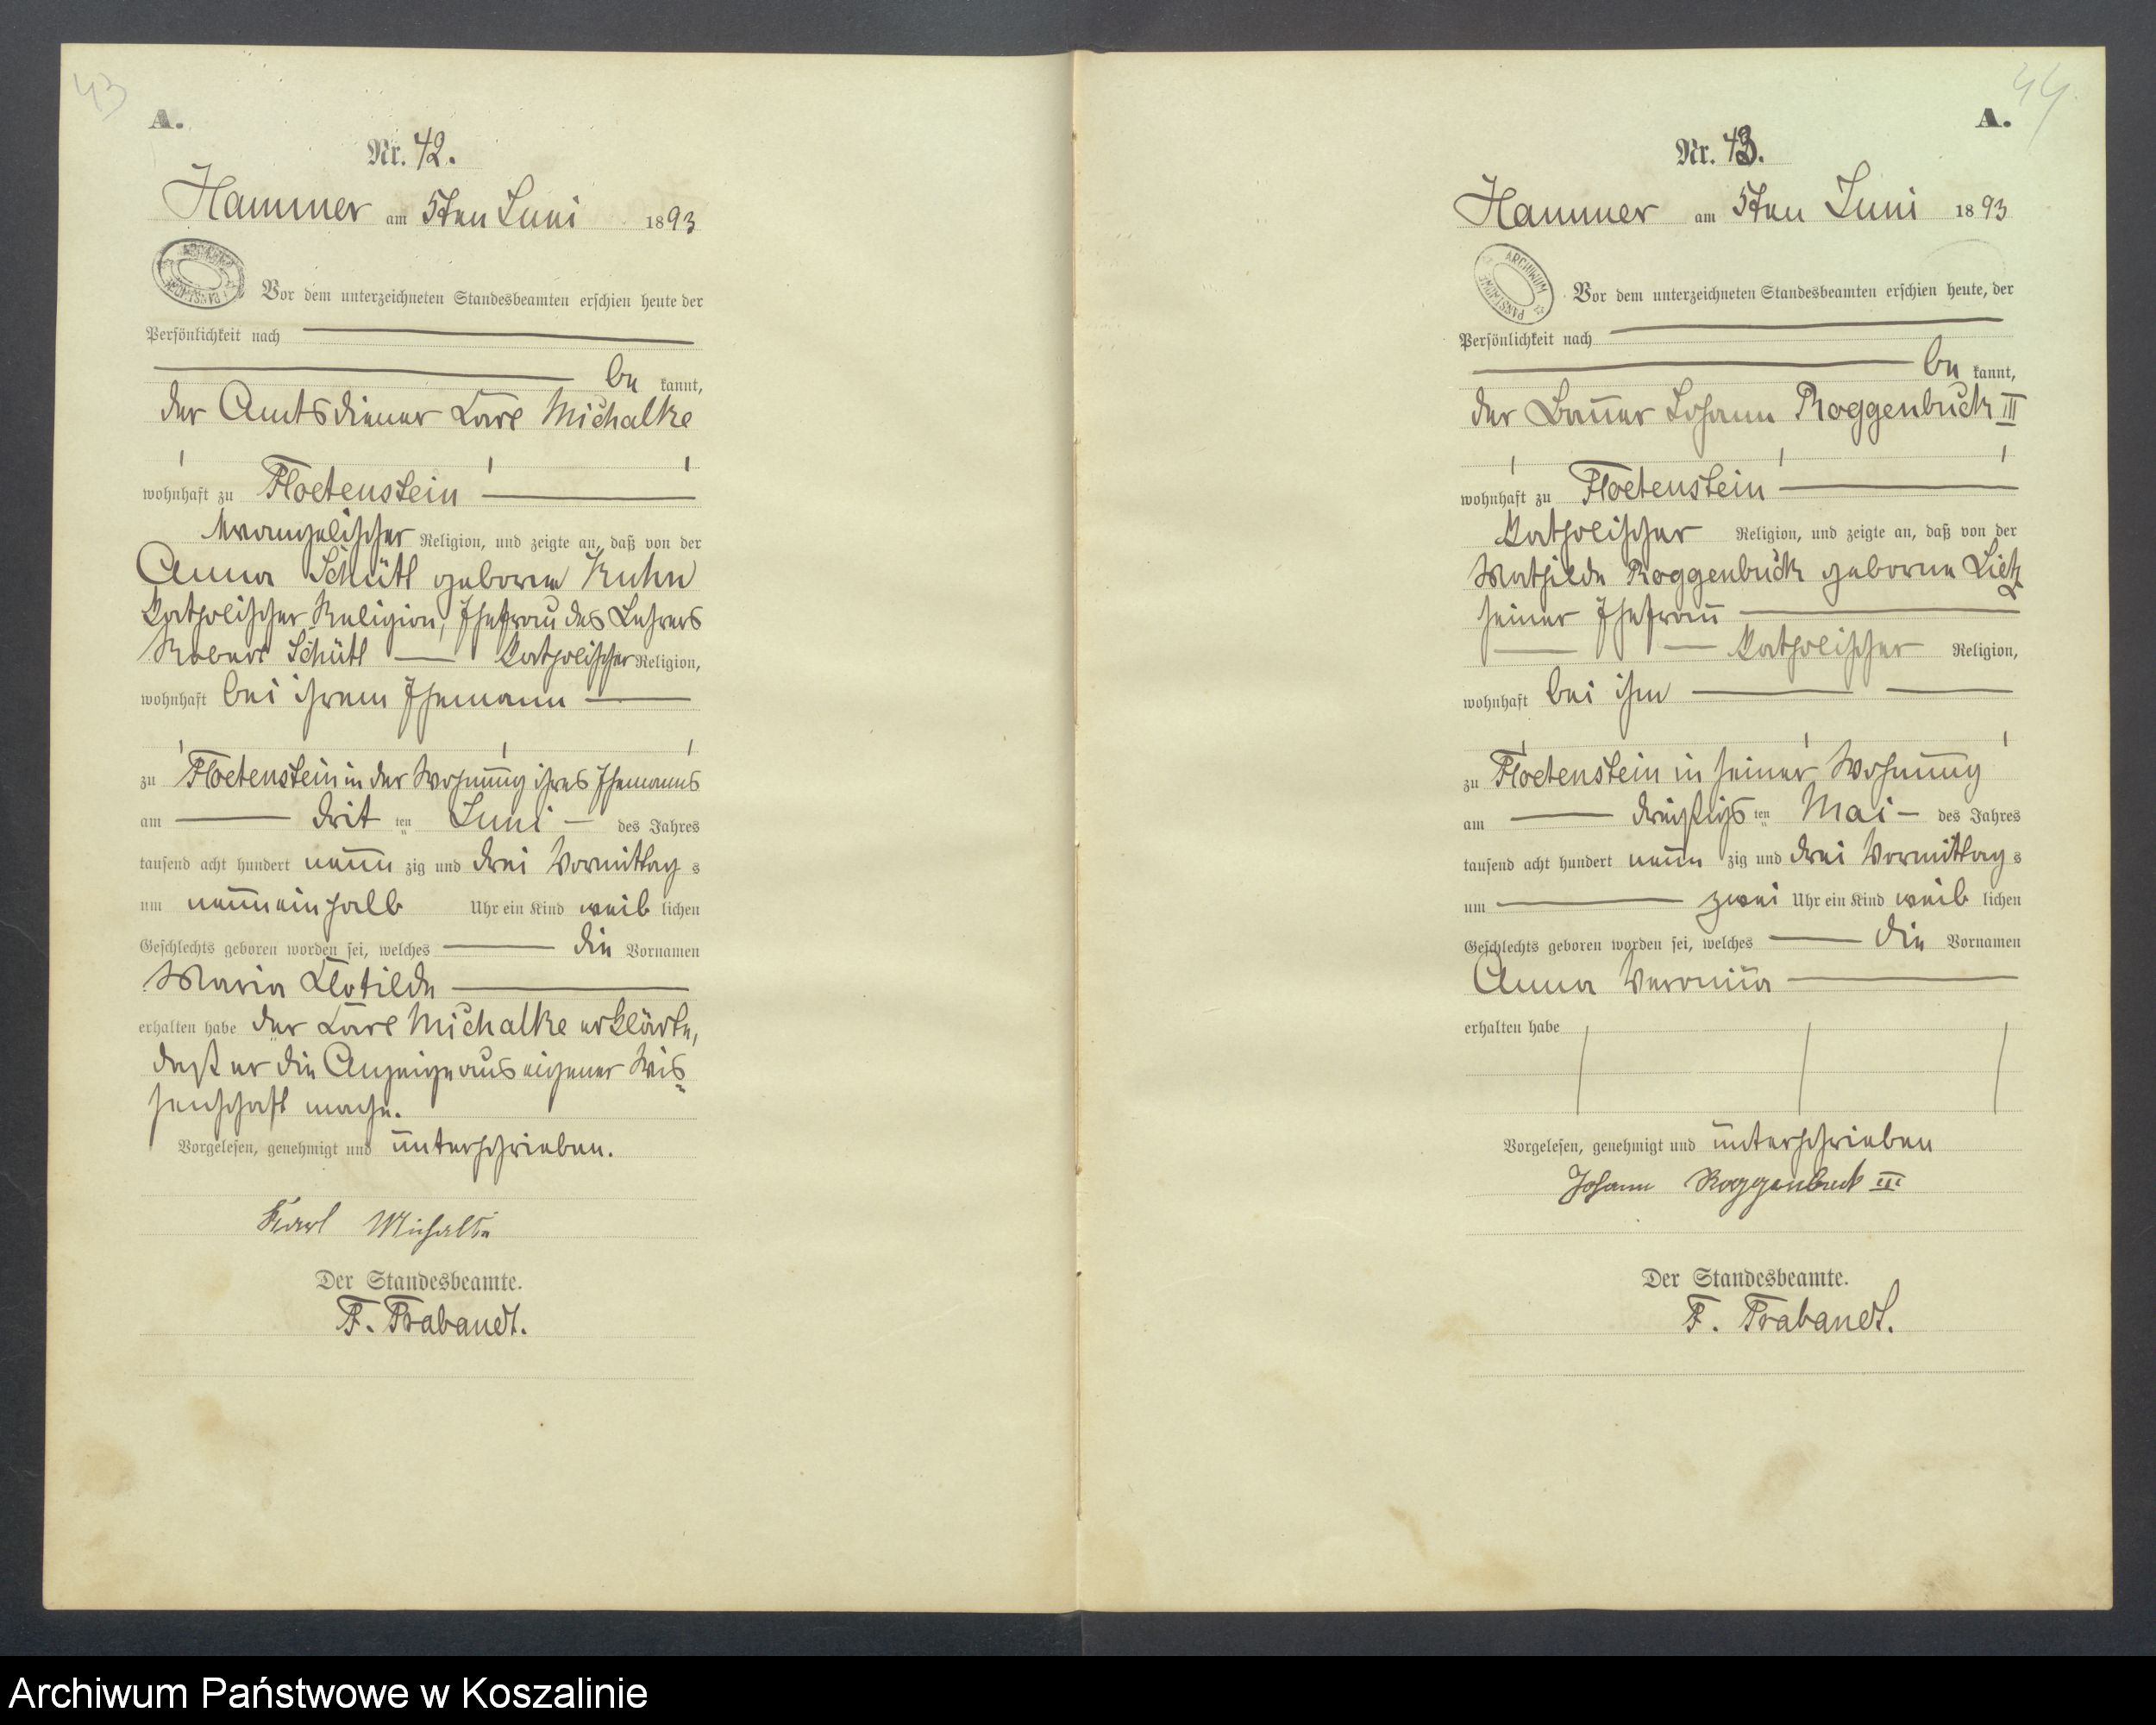 43
A.
Nr. 42.
Hammer am 5ten Juni 1893
Vor dem unterzeichneten Standesbeamten erschien heute der
Persönlichkeit nach
be kannt,
der Amtsdiener Carl Michalke
wohnhaft zu Floetenstein
evangelischer Religion, und zeigte an, daß von der
Anna Schütt geborene Kuhn
katholischer Religion, Ehefrau des Lehrers
Robert Schütt katholischer Religion,
wohnhaft bei ihrem Ehemann
zu Floetenstein in der Wohnung ihres Ehemanns
am drit ten Juni des Jahres
tausend acht hundert neun zig und drei Vormittag s
um neuneinhalb Uhr ein Kind weib lichen
Geschlechts geboren worden sei, welches die Vornamen
Maria Clotilde
erhalten habe der Carl Michalke erklärte,
daß er die Anzeige aus eigener Wis-
senschaft mache.
Vorgelesen, genehmigt und unterschrieben.
Karl Michalke
Der Standesbeamte.
F. Trabandt.
44
A.
Nr. 43.
Hammer am 5ten Juni 1893
ARCHIWUM PAŃSTWOWE
Vor dem unterzeichneten Standesbeamten erschien heute, der
Persönlichkeit nach
be kannt,
der Bauer Johann Roggenbuck III
wohnhaft zu Floetenstein
katholischer Religion, und zeigte an, daß von der
Mathilde Roggenbuck geborne Lietz
seiner Ehefrau
katholischer Religion,
wohnhaft bei ihm
zu Floetenstein in seiner Wohnung
am dreißigs ten Mai des Jahres
tausend acht hundert neun zig und drei Vormittag s
um zwei Uhr ein Kind weib lichen
Geschlechts geboren worden sei, welches die Vornamen
Anna Veronika
erhalten habe
Vorgelesen, genehmigt und unterschrieben
Johann Roggenbuck III
Der Standesbeamte.
F. Trabandt.
Archiwum Państwowe w Koszalinie